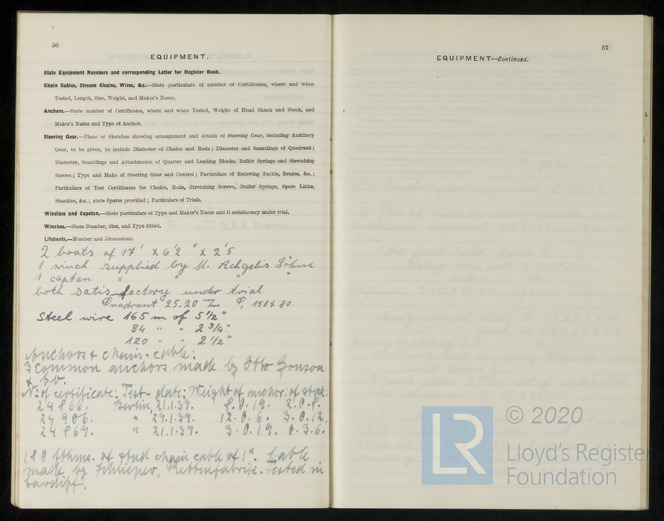 56
EQUIPMENT.
State Equipment Numbers and corresponding Letter for Register Book.
Chain Cables, Stream Chains, Wires, &c.—State particulars of number of Certificates, where and when
Tested, Length, Size, Weight, and Maker's Name.
Anchors.—State number of Certificates, where and when Tested, Weight of Head Shank and Stock, and
Maker's Name and Type of Anchor.
Steering Gear.—Plans or Sketches showing arrangement and details of Steering Gear, including Auxiliary
Gear, to be given, to include Diameter of Chains and Rods; Diameter and Scantlings of Quadrant;
Diameter, Scantlings and Attachments of Quarter and Leading Blocks, Buffer Springs and Stretching
Screws; Type and Make of Steering Gear and Control; Particulars of Relieving Tackle, Brakes, &c.;
Particulars of Test Certificates for Chains, Rods, Stretching Screws, Buffer Springs, Spare Links,
Shackles, &c.; state Spares provided; Particulars of Trials.
Windlass and Capstan.—State particulars of Type and Maker's Name and if satisfactory under trial.
Winches.—State Number, Size, and Type fitted.
Lifeboats.—Number and Dimensions.
2 boats of 17' x 6'2" x 2'5
1 winch supplied by H. Achgelis Söhne
1 captan " " "
both satisfactory under trial
Quadrant 25.20
Steel wire 165 m of 5 1/2"
84 " " 2 3/4"
120 " " 2 1/2"
Anchors & chain-cable:
3 common anchors made by Otto Gruson
& Co.
No. of certificate: Test-date: Weight of anchor: of stock
Berlin, 21.1.39.
" 21.1.39.
of stud chain cable of 1". Cable
made by Kettenfabrik. Tested in
Cardiff.
57
EQUIPMENT—Continued.
LR
© 2020
Lloyd's Register
Foundation